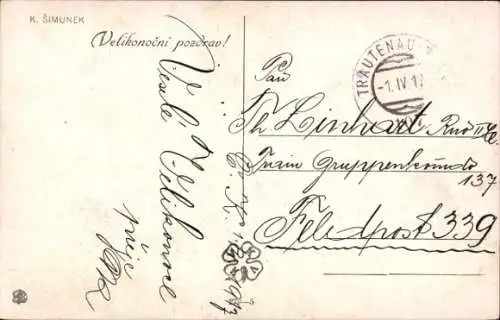 K. ŠIMUNEK
Velikonoční pozdrav!
Veselé Velikonoce
přeje
TRAUTENAU
-1.IV.1
Pan
Th. Linhart
Train Gruppenkomdo
137
Feldpost 339